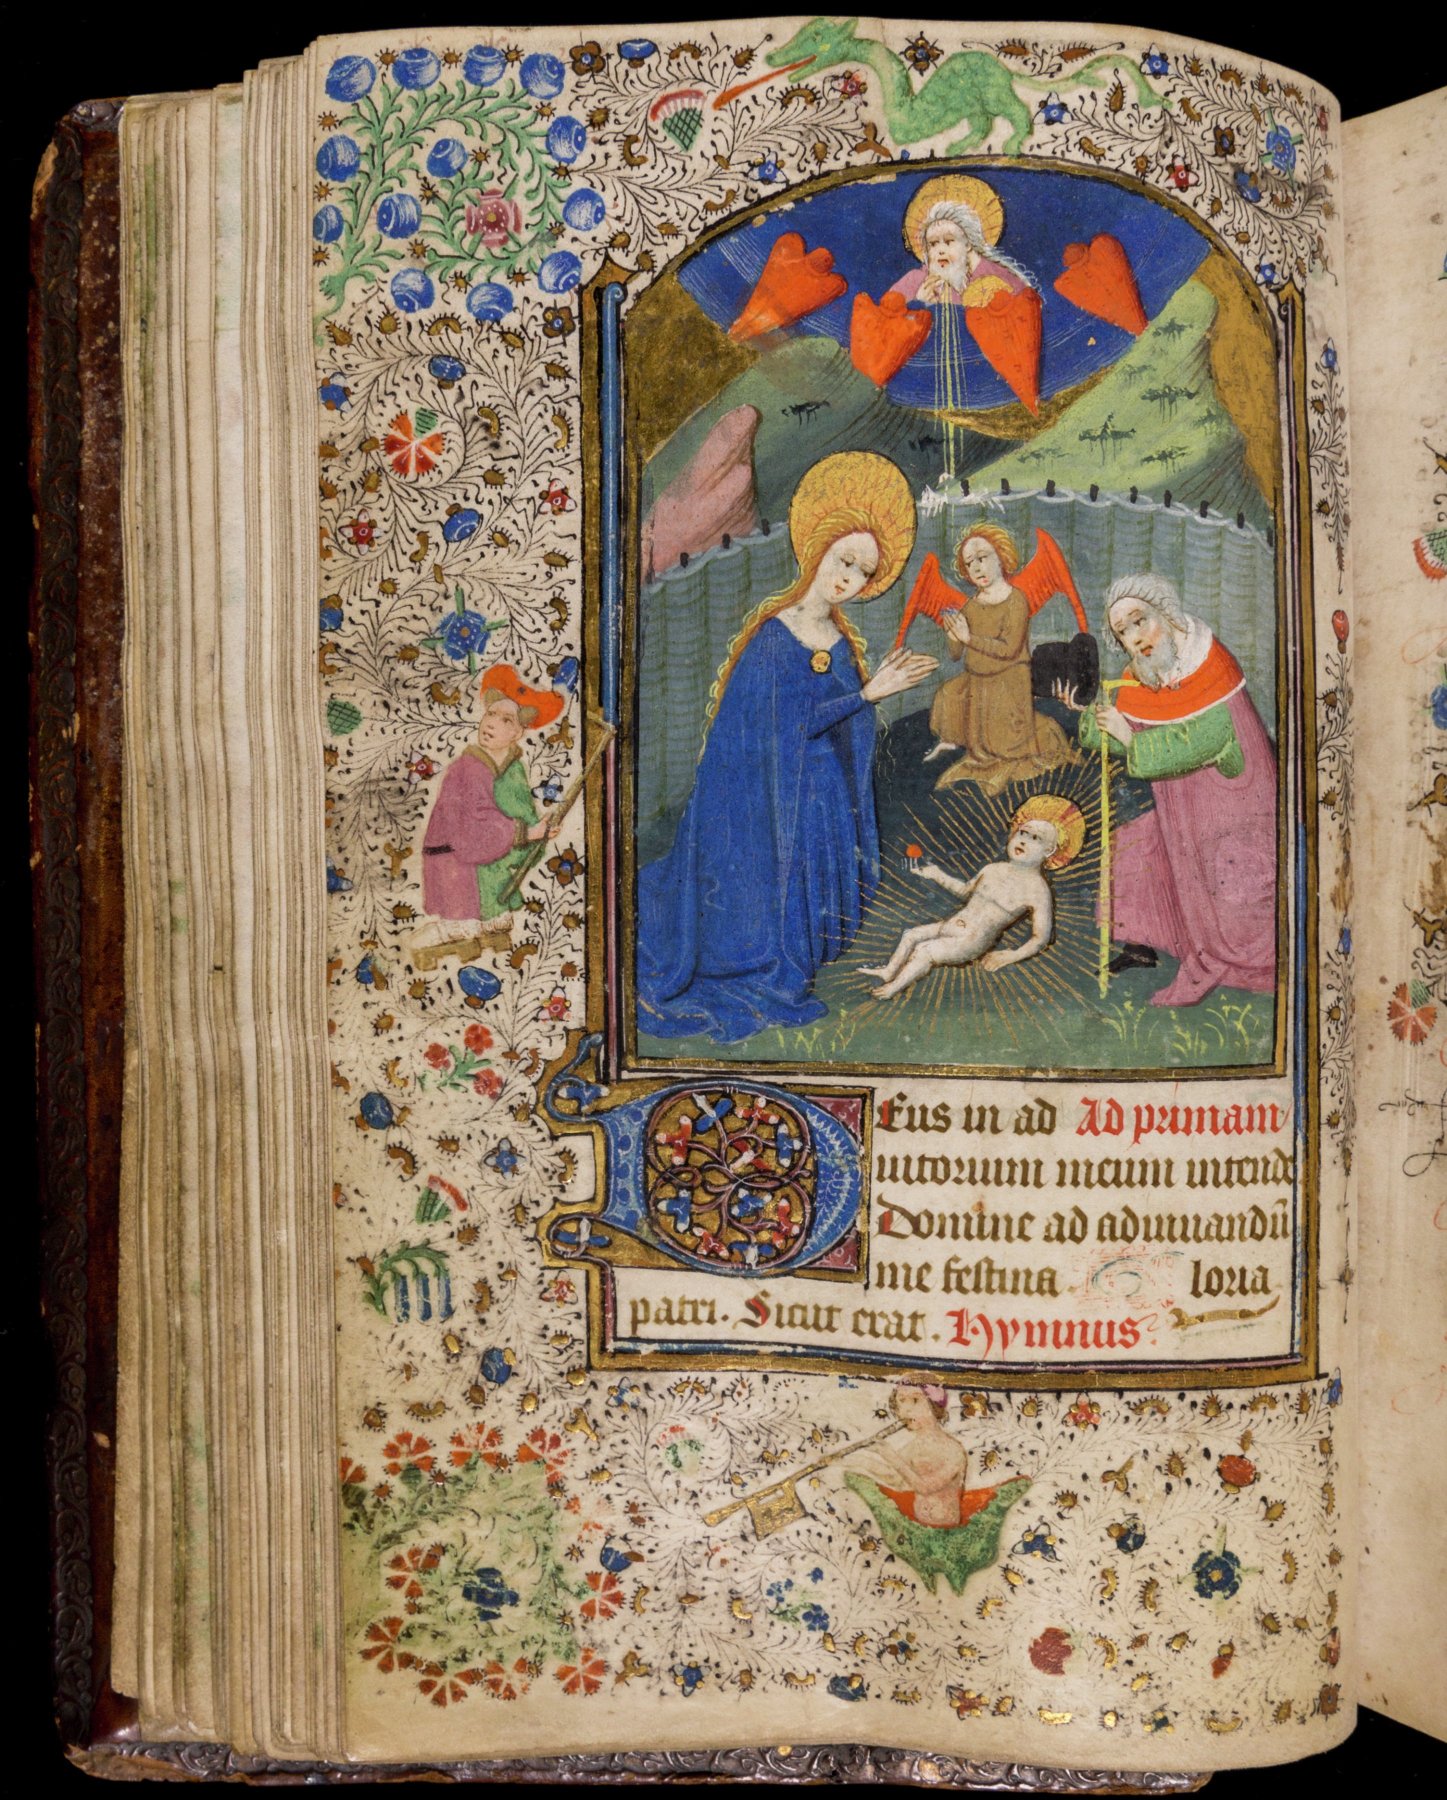 Deus in ad Ad primam
iutorium meum intende
Domine ad adiuuandū
me festina. Gloria
patri. Sicut erat. Hymnus.